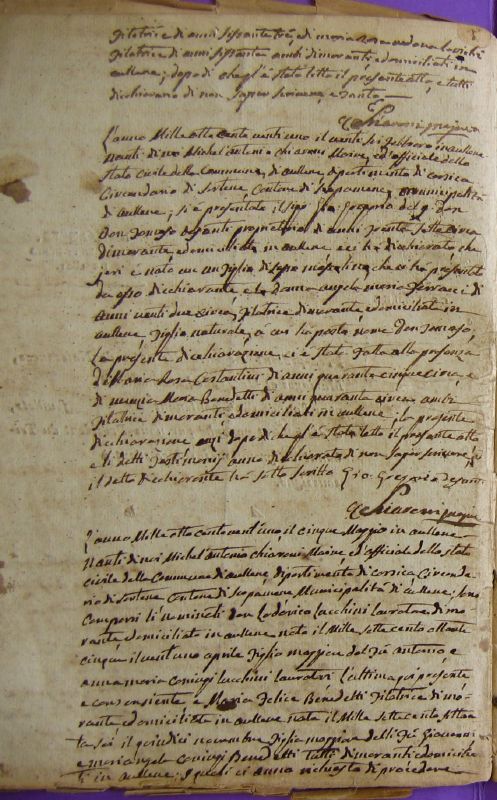 filatrice di anni sessanta tre, e di maria Rosa
filatrice di anni sessanta ambi dimoranti e domiciliati in
aullene; dopo di che gl'è stato letto il presente atto, e tutti
dichiarano di non saper scrivere, e tanto
Chiaroni maire
L'anno Mille otto cento venti uno il venti sei febbraro in aullene
nanti di noi Michel'antonio chiaroni Maire, ed officiale dello
stato civile della Commune, di aullene, dipartimento di corsica
Circondario di Sartene, Cantone di Scopamene, municipalità
di aullene; si è presentato il sigr Gio: Grazio del q. Don
Don Tomaso desanti proprietario di anni trenta sette circa
dimorante, e domiciliato in aullene e ci ha dichiarato che
jeri è nato un figlio di sesso mascolino, che ci ha presentato
da esso dichiarante, e la donna angela maria ferracci di
anni venti due circa, filatrice dimorante, e domiciliata in
aullene figlio naturale, a cui ha posto nome Don Tomaso,
La presente dichiarazione, ci è stata fatta alla presenza
di Maria Rosa Costantini di anni quaranta cinque circa, e
di Maria Benedetti di anni quaranta circa ambi
filatrice dimoranti, e domiciliati in aullene; la presente
dichiarazione dopo di che gl'è stato letto il presente atto
e li detti testimonij anno dichiarato di non saper scrivere, e
il detto dichiarante ha sotto scritto Gio: Grazio desanti
Chiaroni maire
L'anno Mille otto cento vent'uno, il cinque Maggio in aullene
Nanti di noi Michel'antonio chiaroni Maire ed officiale dello stato
civile della Commune di aullene, dipartimento di corsica Circonda
rio di Sartene Cantone di Scopamene Municipalità di aullene; sono
Comparsi li nominati don Lodovico Lucchini lavoratore dimo
rante, e domiciliato in aullene nato il Mille sette cento ottanta
cinque il vent'uno aprile figlio maggiore del fù antonio e
anna maria coniugi Lucchini lavoratori L'ultima qui presente
e consensiente, e Maria Felice Benedetti filatrice dimo-
rante e domiciliata in aullene nata il Mille sette cento settan
ta sei il quindici novembre figlia maggiore delli fù Giovanni
e mariangela coniugi Benedetti tutti dimoranti e domicilia
ti in aullene; i quali ci anno richiesto di procedere